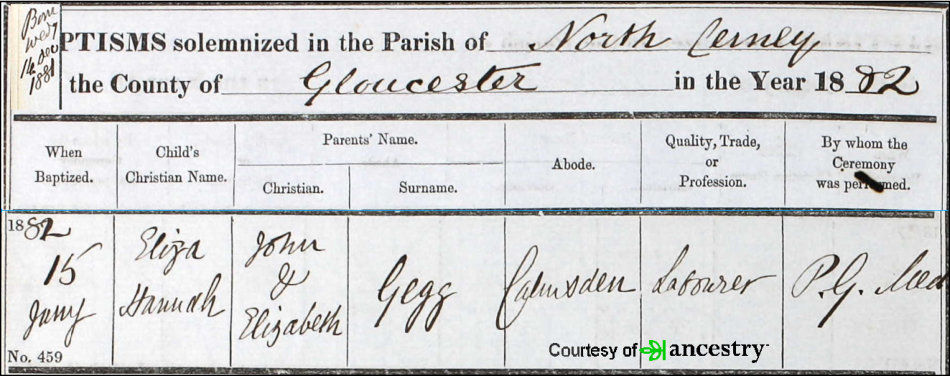 Born
Wedy
14 Dec
1881
PTISMS solemnized in the Parish of North Cerney
the County of Gloucester in the Year 1882
When
Baptized.
Child's
Christian Name.
Parents' Name.
Christian.
Surname.
Abode.
Quality, Trade,
or
Profession.
By whom the
Ceremony
was performed.
1882
15
Jany
No. 459
Eliza
Hannah
John
&
Elizabeth
Gegg
Calmsden
Labourer
P.G.
Courtesy of ancestry